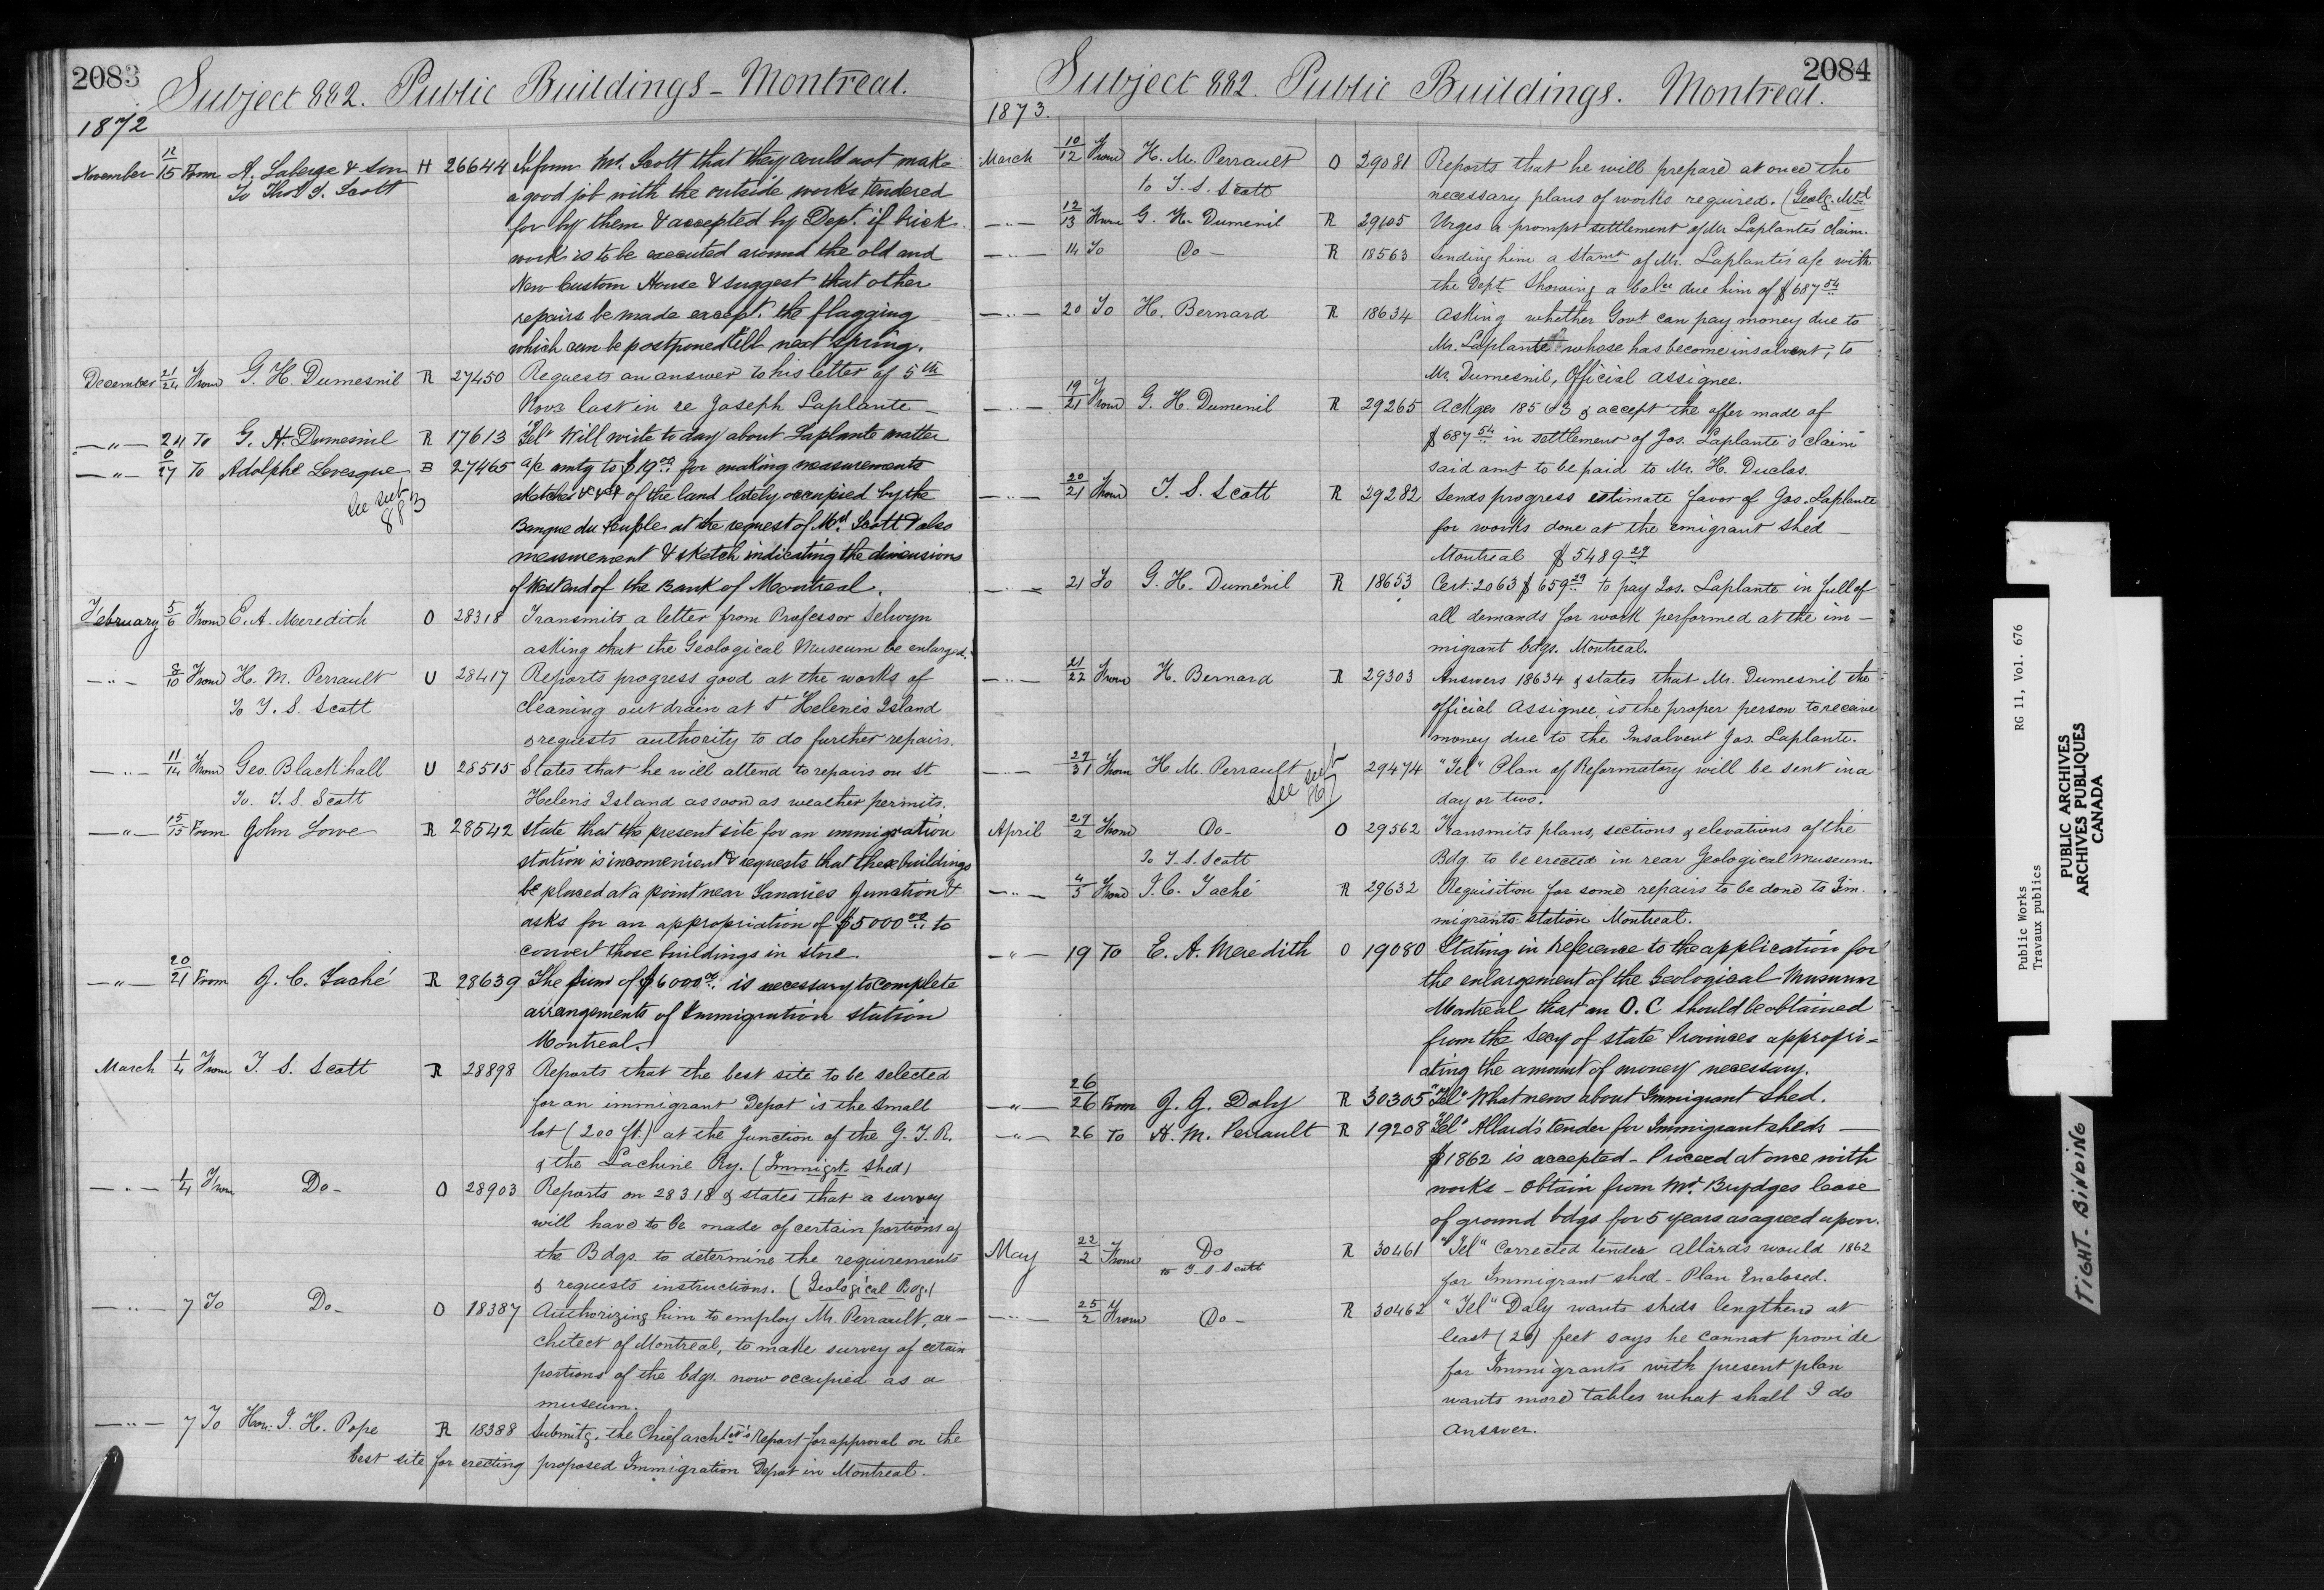 2083
Subject 882. Public Buildings - Montreal.
1872
November 12/15 From A. Laberge & Son H 26644 Inform Mr. Scott that they could not make
To Thos S. Scott a good job with the outside works tendered
for by them & accepted by Dept. if brick
work is to be executed around the old and
New Custom House & suggest that other
repairs be made except. the flagging
which can be postponed till next spring.
December 21/24 From G. H. Dumesnil R 27450 Requests an answer to his letter of 5th
Novr last in re Joseph Laplante -
— " — 24 To G. H. Dumesnil R 17613 "Tel" Will write to day about Laplante matter
— " — 27 To Adolphe Levesque B 27465 a/c amtg to $19.00 for making measurements
See subt 883 sketches &c &c of the land lately occupied by the
Banque du Peuple at the request of Mr. Scott & also
measurement & sketch indicating the dimensions
of West end of the Bank of Montreal.
February 5/6 From E. A. Meredith O 28318 Transmits a letter from Professor Selwyn
asking that the Geological Museum be enlarged.
— " — 8/10 From H. M. Perrault U 28417 Reports progress good at the works of
To T. S. Scott cleaning out drain at St Helene's Island
& requests authority to do further repairs.
— " — 11/14 From Geo. Blackhall U 28515 States that he will attend to repairs on St
To. T. S. Scott Helen's Island as soon as weather permits.
— " — 15/15 From John Lowe R 28542 state that the present site for an immigration
station is inconvenient & requests that these buildings
be placed at a point near Tanaries Junction &
asks for an appropriation of $5000.00 to
convert those buildings in store
— " — 20/21 From J. C. Taché R 28639 The sum of $6000.00 is necessary to complete
arrangements of Immigration station
Montreal.
March 1/4 From T. S. Scott R 28898 Reports that the best site to be selected
for an immigrant Depot is the small
lot (200 ft.) at the Junction of the G. T. R.
& the Lachine Ry. (Immigrt. Shed)
— " — 1/4 From Do - O 28903 Reports on 28318 & states that a survey
will have to be made of certain portions of
the Bdgs. to determine the requirements
& requests instructions. (Geological Bdg.)
— " — 7 To Do - O 18387 Authorizing him to employ Mr. Perrault, ar-
chitect of Montreal, to make survey of certain
portions of the bdgs. now occupied as a
museum.
— " — 7 To Hon. J. H. Pope R 18388 Submitg. the Chief archtect's Report for approval on the
best site for erecting proposed Immigration Depot in Montreal.
2084
Subject 882. Public Buildings. Montreal.
1873.
March 10/12 From H. M. Perrault O 29081 Reports that he will prepare at once the
to T. S. Scott necessary plans of works required. (Geolg. Mus.
— " — 12/13 From G. H. Dumenil R 29105 Urges a prompt settlement of Mr Laplante's claim.
— " — 14 To Do - R 18563 Sending him a Stamt of Mr. Laplante's a/c with
the Dept. Showing a balce due him of $687.54
— " — 20 To H. Bernard R 18634 Asking whether Govt can pay money due to
Mr. Laplante whose has become insolvent, to
Mr. Dumesnil, Official Assignee.
— " — 19/21 From G. H. Dumenil R 29265 Ackges 18563 & accept the offer made of
$687.54 in settlement of Jos. Laplante's claim
said amt to be paid to Mr. H. Duclos.
— " — 20/21 From T. S. Scott R 29282 Sends progress estimate favor of Jos. Laplante
for works done at the emigrant shed -
Montreal $5489.29
— " — 21 To G. H. Dumenil R 18653 Cert. 2063 $659.29 to pay Jos. Laplante in full of
all demands for work performed at the im-
migrant bdgs. Montreal.
— " — 21/22 From H. Bernard R 29303 Answers 18634 & states that Mr. Dumesnil the
official Assignee is the proper person to receive
money due to the Insolvent Jos. Laplante.
— " — 29/31 From H. M. Perrault See subt 29474 "Tel" Plan of Reformatory will be sent in a
day or two.
April 29/2 From Do - O 29562 Transmits plans, sections & elevations of the
To T. S. Scott Bdg to be erected in rear Geological museum.
— " — 4/5 From J. C. Taché R 29632 Requisition for some repairs to be done to Im.
migrants station Montreal.
— " — 19 To E. A. Meredith O 19080 Stating in reference to the application for
the enlargement of the Geological Museum
Montreal that an O. C should be obtained
from the Secy of State Provinces appropri=
ating the amount of money necessary.
— " — 26/26 From J. J. Daly R 30305 "Tel" What news about Immigrant shed.
— " — 26 To H. M. Perrault R 19208 "Tel" Allard's tender for Immigrant sheds —
$1862 is accepted - Proceed at once with
works - obtain from Mr. Brydges lease
of ground bdgs for 5 years as agreed upon.
May 22/2 From Do R 30461 "Tel" Corrected tender Allards would 1862
to T. S. Scott for Immigrant shed - Plan Enclosed.
— " — 25/2 From Do - R 30462 "Tel" Daly wants sheds lengthend at
least (20) feet says he cannot provide
for Immigrants with present plan
wants more tables what shall I do
answer.
Public Works RG 11, Vol. 676
Travaux publics
PUBLIC ARCHIVES
ARCHIVES PUBLIQUES
CANADA
TIGHT-BINDING